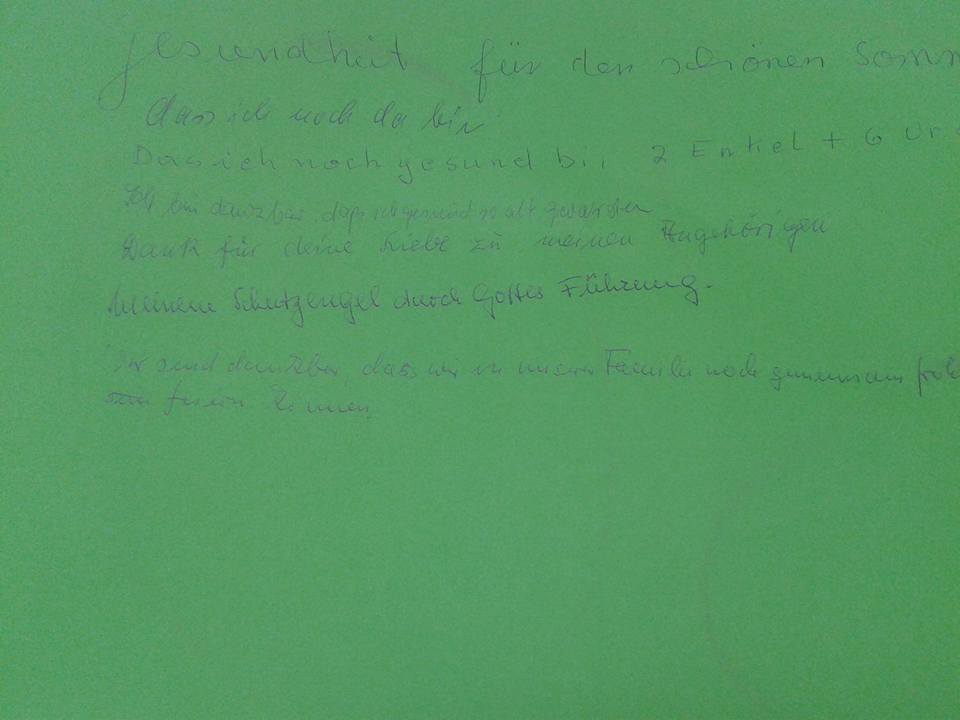 gesundheit für den schönen Somm
dass ich noch da bin
Dass ich noch gesund bin 2 Enkel + 6 Ur
Ich bin dankbar, dass ich gesund so alt geworden
Dank für deine Liebe zu meinen Angehörigen
Meinem Schutzengel durch Gottes Führung.
Wir sind dankbar, dass wir in unserer Familie noch gemeinsam froh
feiern können